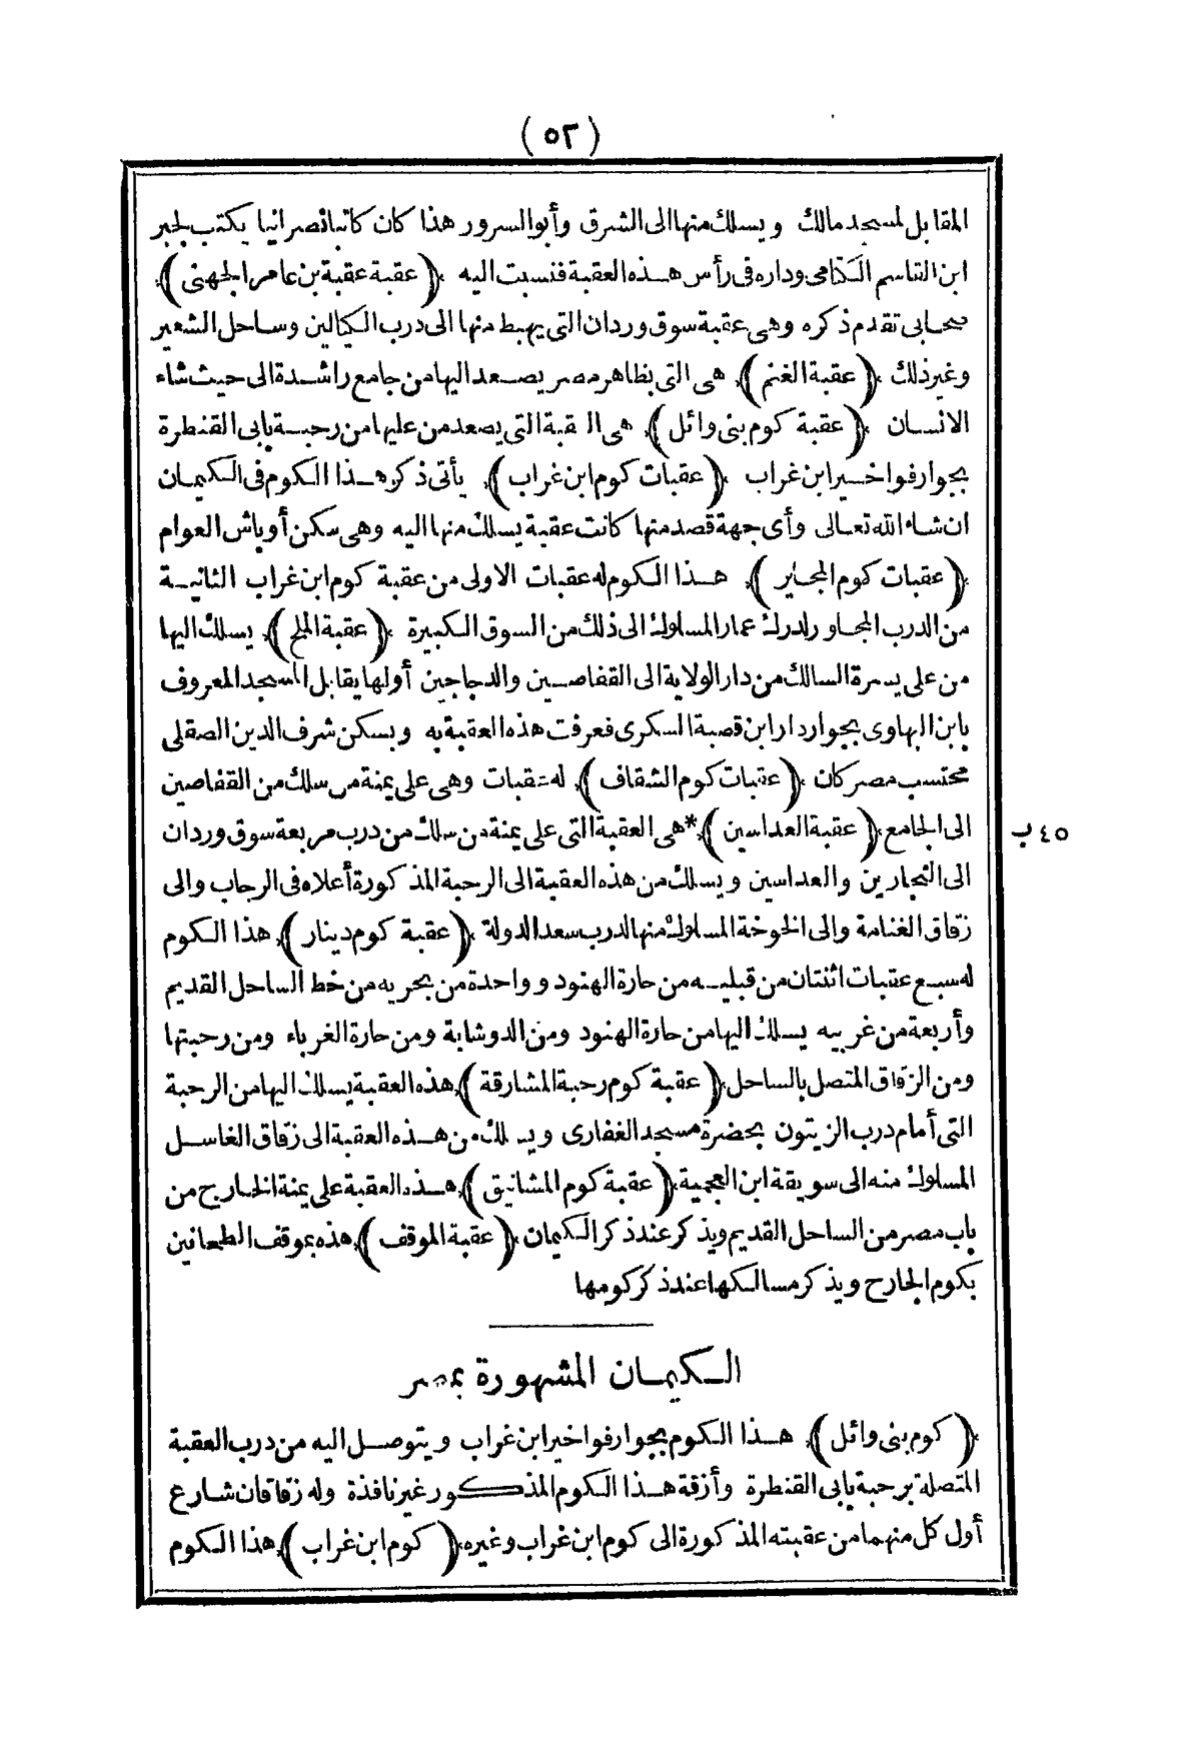 (٥٢)
المقابل لمسجد مالك ويسلك منها الى الشرق وأبو السرور هذا كان كاتبا نصرانيا يكتب لجبر
ابن القاسم الكتامى وداره فى رأس هذه العقبة فنسبت اليه (عقبة عقبة بن عامر الجهنى)
صحابى تقدم ذكره وهى عقبة سوق وردان التى يهبط منها الى درب الكيالين وساحل الشعير
وغير ذلك (عقبة الغنم) هى التى بظاهر مصر يصعد اليها من جامع راشدة الى حيث شاء
الانسان (عقبة كوم بنى وائل) هى الـقبة التى يصعد من عليها من رحبة يابى القنطرة
بجوار فواخير ابن غراب (عقبات كوم ابن غراب) يأتى ذكر هذا الكوم فى الكيمان
ان شاء الله تعالى وأى جهة قصد منها كانت عقبة يسلك منها اليه وهى سكن أوباش العوام
(عقبات كوم المجاير) هذا الكوم له عقبات الاولى من عقبة كوم ابن غراب الثانية
من الدرب المجاور لدرك عمار المسلوك الى ذلك من السوق الكبيرة (عقبة الملح) يسلك اليها
من على يسرة السالك من دار الولاية الى القفاصين والدجاجين أولها يقابل المسجد المعروف
بابن البهاوى بجوار دار ابن قصبة السكرى فعرفت هذه العقبة به وبسكن شرف الدين الصقلى
محتسب مصر كان (عقبات كوم الشقاف) له عقبات وهى على يمنة من سلك من القفاصين
الى الجامع (عقبة العداسين) *هى العقبة التى على يمنة من سلك من درب مربعة سوق وردان
٤٥ب
الى النجارين والعداسين ويسلك من هذه العقبة الى الرحبة المذكورة أعلاه فى الرحاب والى
زقاق الغنامة والى الخوخة المسلوك منها لدرب سعد الدولة (عقبة كوم دينار) هذا الكوم
له سبع عقبات اثنتان من قبليه من حارة الهنود وواحدة من بحريه من خط الساحل القديم
وأربعة من غربيه يسلك اليها من حارة الهنود ومن الدوشابة ومن حارة الغرباء ومن رحبتها
ومن الزقاق المتصل بالساحل (عقبة كوم رحبة المشارقة) هذه العقبة يسلك اليها من الرحبة
التى أمام درب الزيتون بحضرة مسجد الغفارى ويسلك من هذه العقبة الى زقاق الغاسل
المسلوك منه الى سويقة ابن العجمية (عقبة كوم المشانيق) هذه العقبة على يمنة الخارج من
باب مصر من الساحل القديم ويذكر عند ذكر الكيمان (عقبة الموقف) هذه بموقف الطحانين
بكوم الجارح ويذكر مسالكها عند ذكر كومها
الكيمان المشهورة بمصر
(كوم بنى وائل) هذا الكوم بجوار فواخير ابن غراب ويتوصل اليه من درب العقبة
المتصلة برحبة يابى القنطرة وأزقة هذا الكوم المذكور غير نافذة وله زقاقان شارع
أول كل منهما من عقبته المذكورة الى كوم ابن غراب وغيره (كوم ابن غراب) هذا الكوم